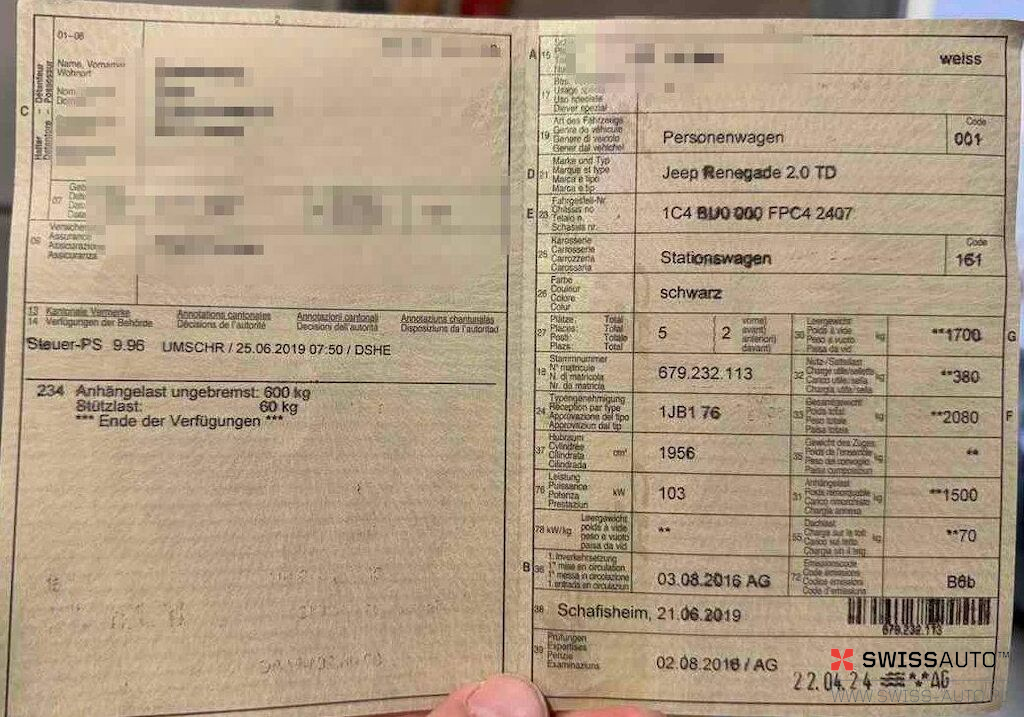 01–06
C
Halter - Détenteur
Detentore - Possessur
Name, Vorname
Wohnort
07
09
Assurance
Assicurazione
Assicuranza
13 Kantonale Vermerke
14 Verfügungen der Behörde
Annotations cantonales
Décisions de l'autorité
Annotazioni cantonali
Decisioni dell'autorità
Annotaziuns chantunalas
Disposiziuns da l'autoritad
Steuer-PS 9.96 UMSCHR / 25.06.2019 07:50 / DSHE
234 Anhängelast ungebremst: 600 kg
Stützlast: 60 kg
*** Ende der Verfügungen ***
A 15
weiss
17
Usage spécial
Uso speciale
Diever spezial
19
Art des Fahrzeugs
Genre de véhicule
Genere di veicolo
Gener dal vehichel
Personenwagen
Code
001
D 21
Marke und Typ
Marque et type
Marca e tipo
Marca e tip
Jeep Renegade 2.0 TD
E 23
Fahrgestell-Nr.
Châssis no
Telaio n.
Schassis nr.
1C4 BU0 000 FPC4 2407
25
Karosserie
Carrosserie
Carrozzeria
Carossaria
Stationswagen
Code
151
26
Farbe
Couleur
Colore
Colur
schwarz
27
Plätze: Total
Places: Total
Posti: Totale
Plazs: Total
5
vorne)
avant)
anteriori)
davant)
2
30
Leergewicht
Poids à vide
Peso a vuoto
Paisa da vid
kg
**1700
G
18
Stammnummer
N° matricule
N. di matricola
Nr. da matricla
679.232.113
32
Nutz-/Sattellast
Charge utile/sellette
Carico utile/sella
Chargia utila/sella
kg
**380
24
Typengenehmigung
Réception par type
Approvazione del tipo
Approvaziun dal tip
1JB1 76
33
Gesamtgewicht
Poids total
Peso totale
Paisa totala
kg
**2080
F
37
Hubraum
Cylindrée
Cilindrata
Cilindrada
cm³
1956
35
Gewicht des Zuges
Poids de l'ensemble
Peso del convoglio
Paisa cumposiziun
kg
**
76
Leistung
Puissance
Potenza
Prestaziun
kW
103
31
Anhängelast
Poids remorquable
Carico rimorchiato
Chargia annexa
kg
**1500
78 kW/kg
Leergewicht
poids à vide
peso a vuoto
paisa da vid
**
55
Dachlast
Charge sur le toit
Carico sul tetto
Chargia sin il tetg
kg
**70
B 36
1. Inverkehrsetzung
1re mise en circulation
1a messa in circolazione
1. entrada en circulaziun
03.08.2016 AG
72
Emissionscode
Code émissions
Codice emissioni
Code d'emissiuns
B6b
38
Schafisheim, 21.06.2019
679.232.113
39
Prüfungen
Expertises
Perizie
Examinaziuns
02.08.2016 / AG
22.04.24
AG
SWISSAUTO™
WWW.SWISS-AUTO